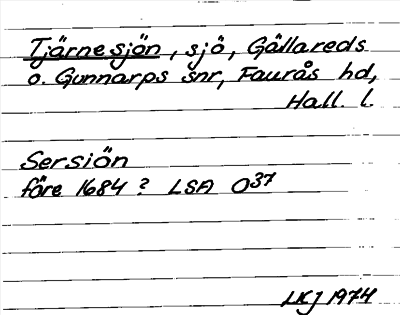 Tjärnesjön, sjö, Gällareds
o. Gunnarps snr, Faurås hd,
Hall. l.
Sersiön
före 1684? LSA O37
LKJ 1974